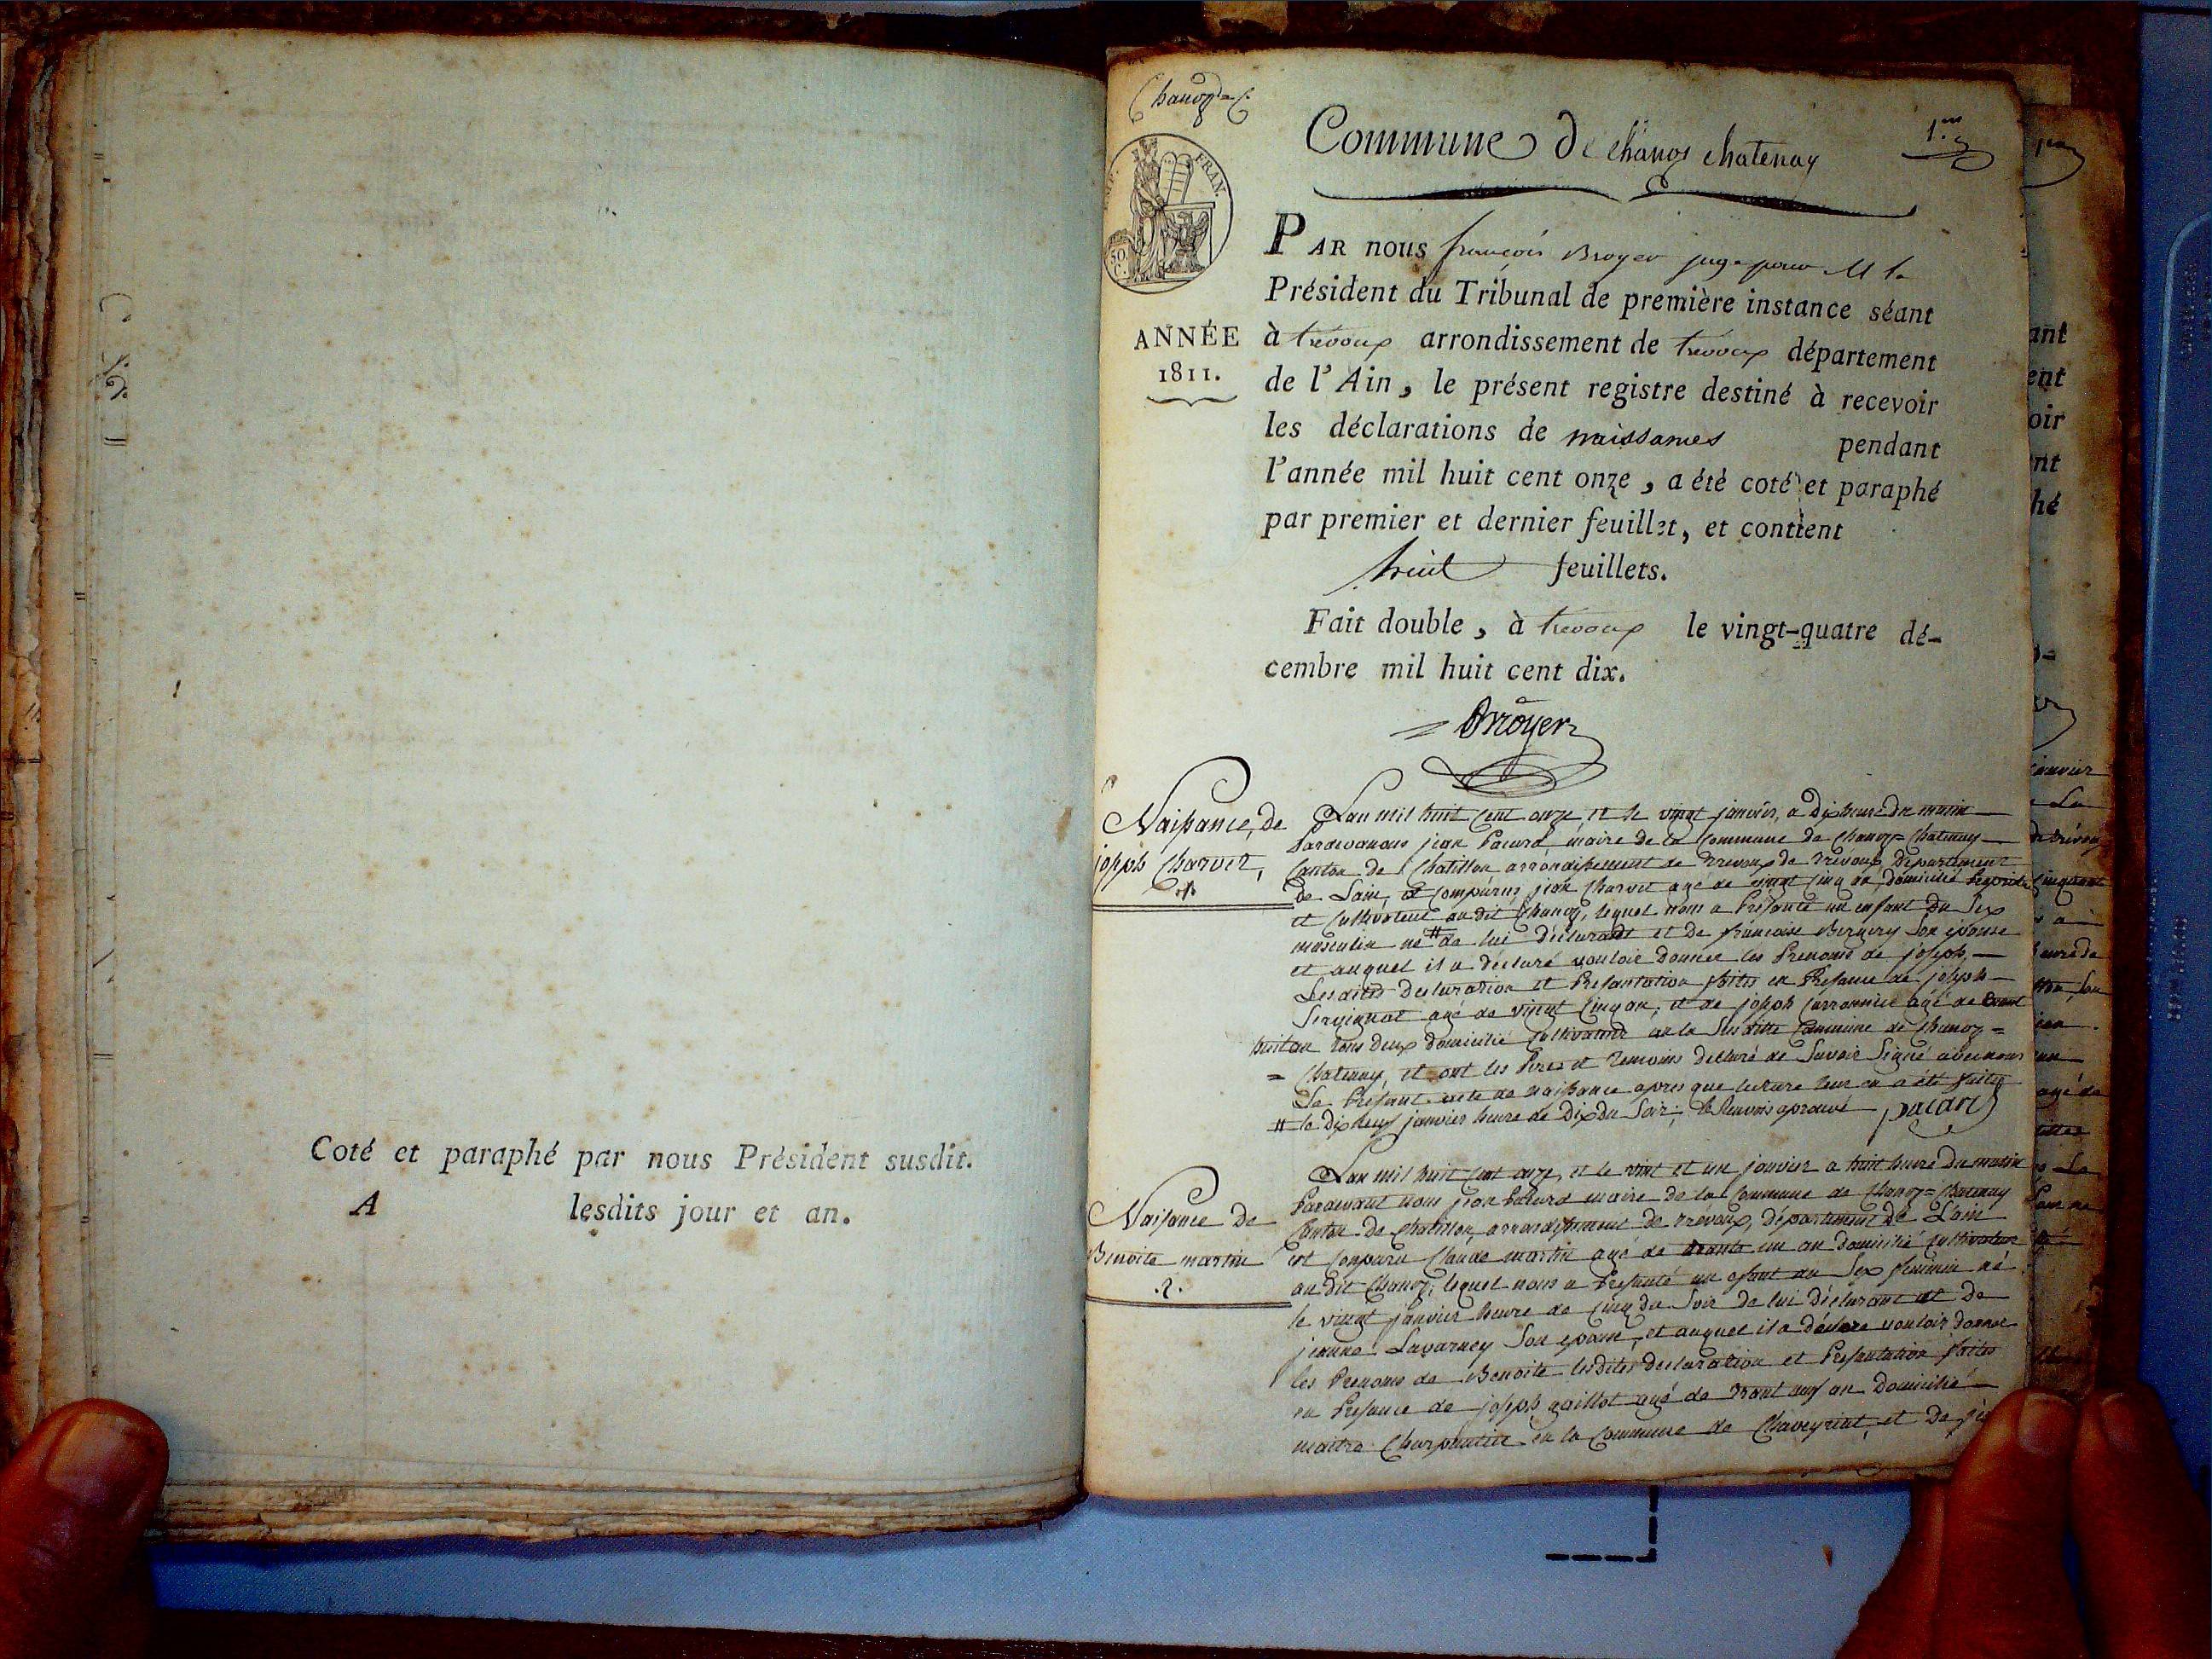 Coté et paraphé par nous Président susdit.
A lesdits jour et an.
Chanoz=C.
Commune De chanoz chatenay
1.er
FRAN.
50.
C.
ANNÉE
1811.
PAR nous françois Broyer juge pour M le
Président du Tribunal de première instance séant
à trévoux arrondissement de trévoux département
de l'Ain, le présent registre destiné à recevoir
les déclarations de naissances pendant
l'année mil huit cent onze, a été coté et paraphé
par premier et dernier feuillet, et contient
huit feuillets.
Fait double, à trevoux le vingt-quatre dé-
cembre mil huit cent dix.
Broyer
Naissance, de
joseph Charvet,
.1.
Lan mil huit Cent onze, et le vingt janvier, a Dix heure du matin
Pardevanous jean Pacard maire de la Commune de Chanoz=Chatenay
Canton de Chatillon arrondissement de Trevoux de Trevoux, departement
De Lain, est Comparus jean Charvet agé de vingt Cinq an, domicilié
et Cultivateur au dit Chanoz, lequel nous a Présanté un enfant du Sex
masculin né # de lui déclarant et De francoise Son epouse
et auquel il a déclaré vouloir donner les Prenoms de joseph,
Lesdites Declaration et Présantation faites en Présance de joseph
agé de vingt Cinq an, et de joseph agé de trant
huit an tous deux domicilié Cultivateur en la Susditte Commune de Chanoz=
=Chatenay, et ont les Pere et Temoins declaré de Savoir Signé avec nous
Le Présant acte de naissance apres que lecture leur en a été faite
# le Dix neuf janvier heure de Dix du Soir, le Renvois aprouvé pacard
Naissance de
Benoite martin
.2.
Lan mil huit Cent onze, et le vint et un janvier a huit heure du matin
Pardevant nous jean Pacard maire de la Commune de Chanoz=Chatenay
Canton de Chatillon, arrondissement de Trévoux, département de L'ain
est Comparu Claude martin agé de trante un an domicilié Cultivateur
au dit Chanoz, lequel nous a Présanté un efant du Sex feminin né
le vingt janvier heure de Cinq du Soir de lui déclarant et De
jeanne Lavarney Son epouse, et auquel il a déclaré vouloir donner
les Prenoms de Benoite lesdites declaration et Présantation faites
en Présance de joseph gaillot agé de trant neuf an Domicilié
maitre Charpentier en la Commune de Chaveyriat, et De